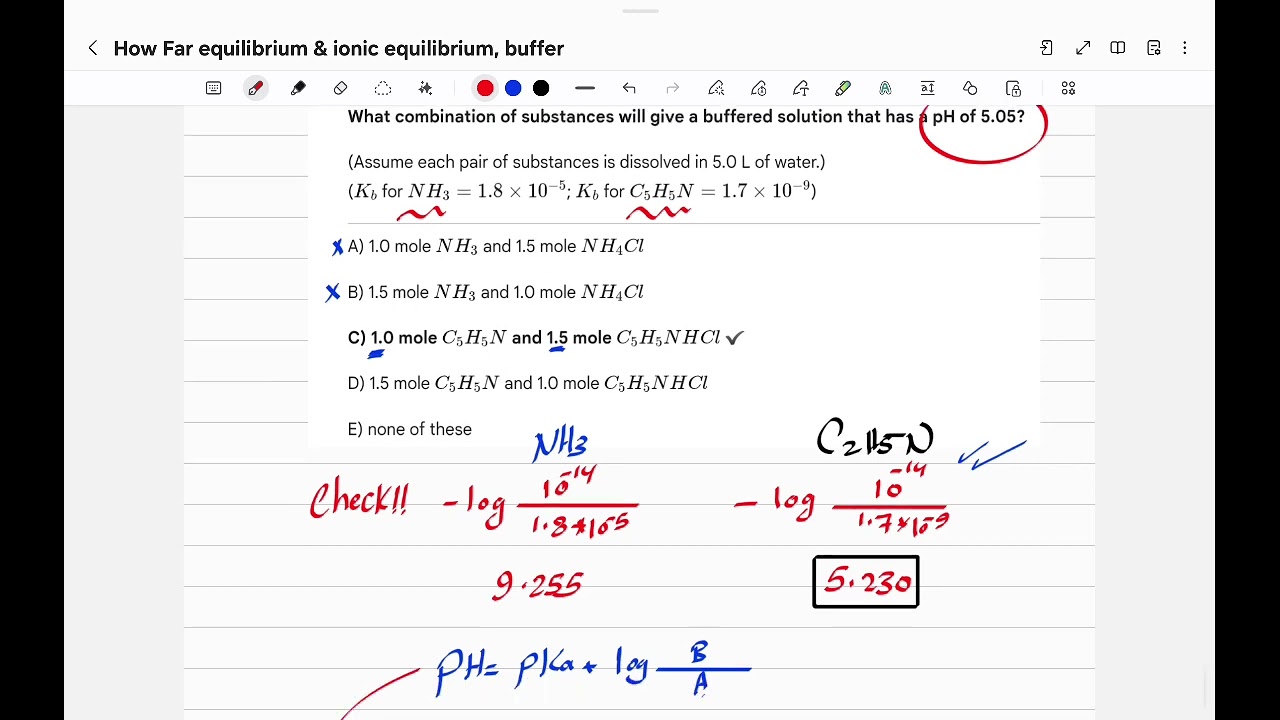 How Far equilibrium & ionic equilibrium, buffer
What combination of substances will give a buffered solution that has a pH of 5.05?
(Assume each pair of substances is dissolved in 5.0 L of water.)
(K_b for NH₃ = 1.8 × 10⁻⁵; K_b for C₅H₅N = 1.7 × 10⁻⁹)
A) 1.0 mole NH₃ and 1.5 mole NH₄Cl
B) 1.5 mole NH₃ and 1.0 mole NH₄Cl
C) 1.0 mole C₅H₅N and 1.5 mole C₅H₅NHCl ✓
D) 1.5 mole C₅H₅N and 1.0 mole C₅H₅NHCl
E) none of these
NH₃ C₂H₅N
Check!! -log 10⁻¹⁴ / 1.8×10⁻⁵ - log 10⁻¹⁴ / 1.7×10⁻⁹
9.255 5.230
pH = pKa + log B / A